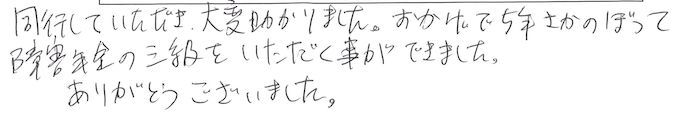 同行していただき、大変助かりました。おかげで5年さかのぼって
障害年金の三級をいただく事ができました。
ありがとうございました。